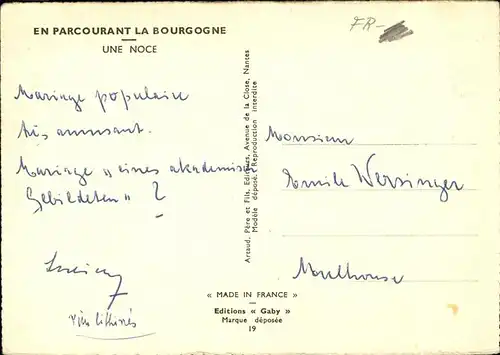 EN PARCOURANT LA BOURGOGNE
UNE NOCE
FR-
Mariage populaire
très amusant.
Mariage „ eines akademisch
Gebildeten " ?
Arcaud, Père et Fils, Editeurs, Avenue de la Close, Nantes
Modèle déposé. Reproduction interdite
Monsieur
Emile Wersinger
Mulhouse
« MADE IN FRANCE »
Editions « Gaby »
Marque déposée
19